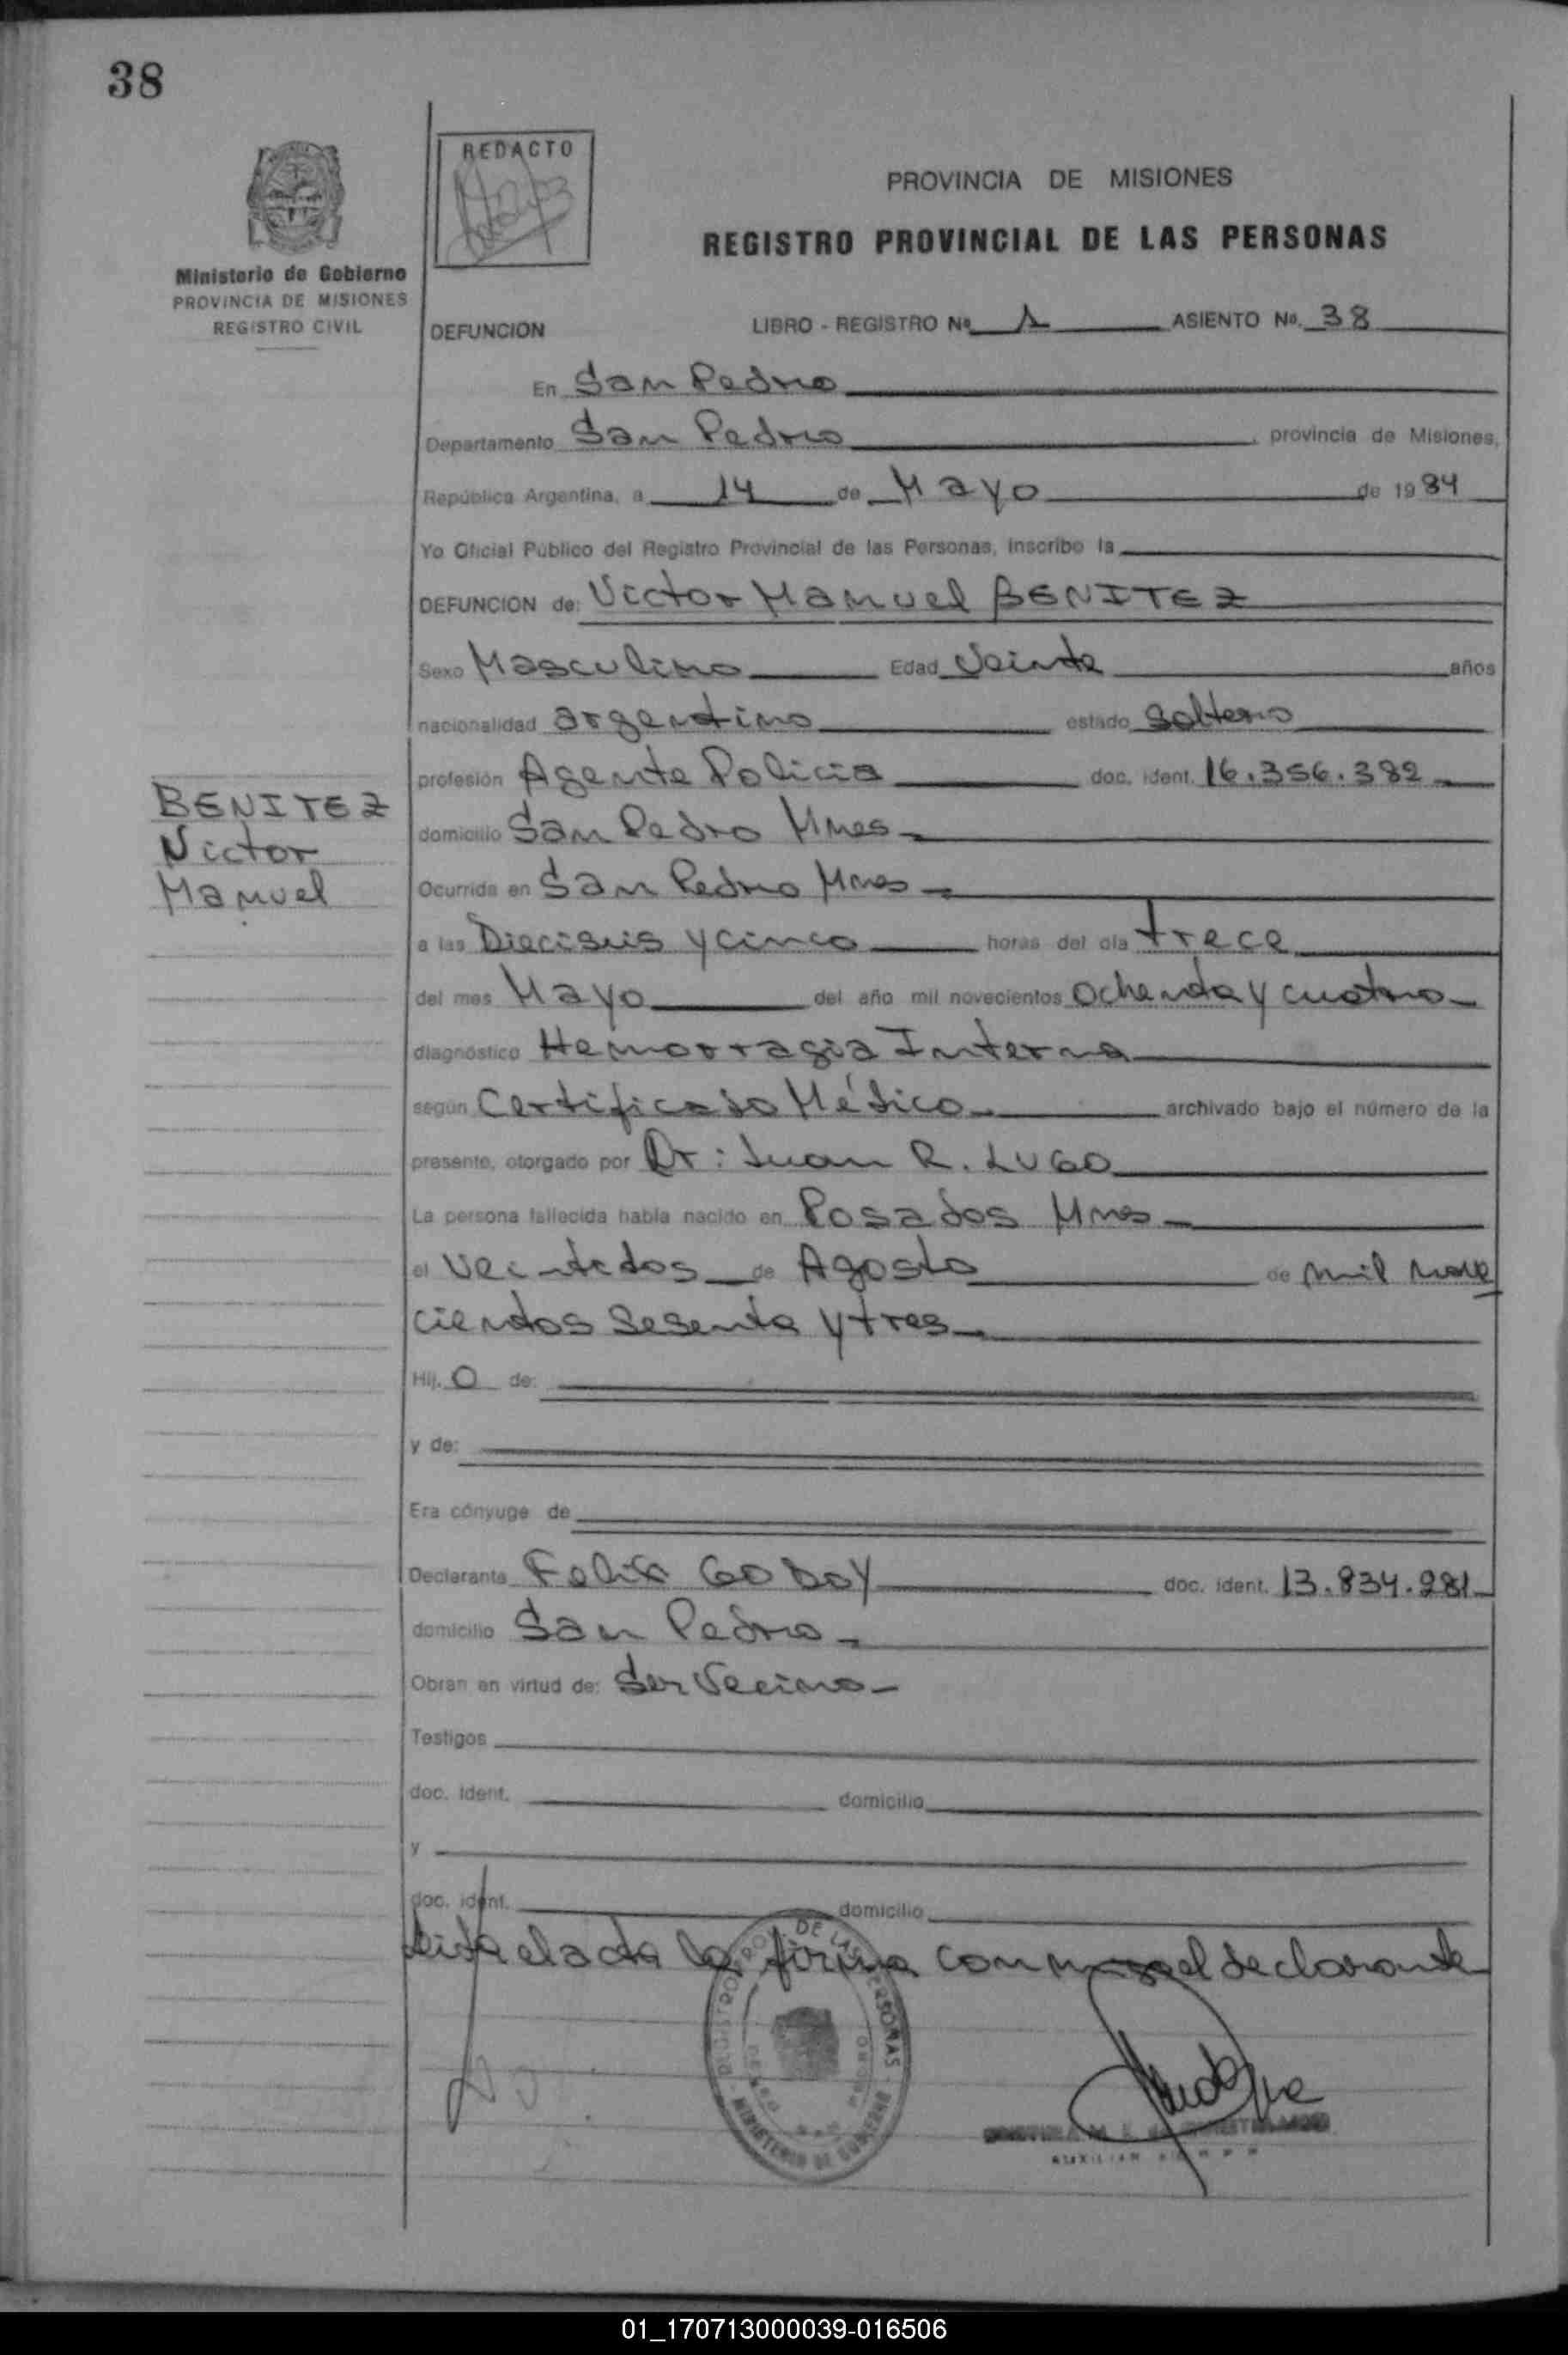 38
REDACTO
Ministerio de Gobierno
PROVINCIA DE MISIONES
REGISTRO CIVIL
PROVINCIA DE MISIONES
REGISTRO PROVINCIAL DE LAS PERSONAS
DEFUNCION LIBRO - REGISTRO Nº 1 ASIENTO No. 38
En San Pedro
Departamento San Pedro, provincia de Misiones,
República Argentina, a 14 de Mayo de 1984
Yo Oficial Público del Registro Provincial de las Personas, inscribo la
DEFUNCION de: Victor Manuel BENITEZ
Sexo Masculino Edad Veinte años
nacionalidad argentino estado Soltero
profesión Agente Policia doc. ident. 16.356.382
BENITEZ
Victor
Manuel
domicilio San Pedro Mnes
Ocurrida en San Pedro Mnes
a las Dieciseis y cinco horas del día trece
del mes Mayo del año mil novecientos ochenta y cuatro
diagnóstico Hemorragia Interna
según Certificado Médico archivado bajo el número de la
presente, otorgado por Dr: Juan R. LUGO
La persona fallecida había nacido en Posadas Mnes
el Veintidos de Agosto de mil nove
cientos sesenta y tres
Hij. o de:
y de:
Era cónyuge de
Declarante Felix GODOY doc. ident. 13.834.281
domicilio San Pedro
Obran en virtud de: Ser Vecino
Testigos
doc. ident. domicilio
y
doc. ident. domicilio
Leida el acta la firma conmigo el declarante
DE LAS PERSONAS
MINISTERIO DE GOBIERNO
AUXILIAR
01_170713000039-016506